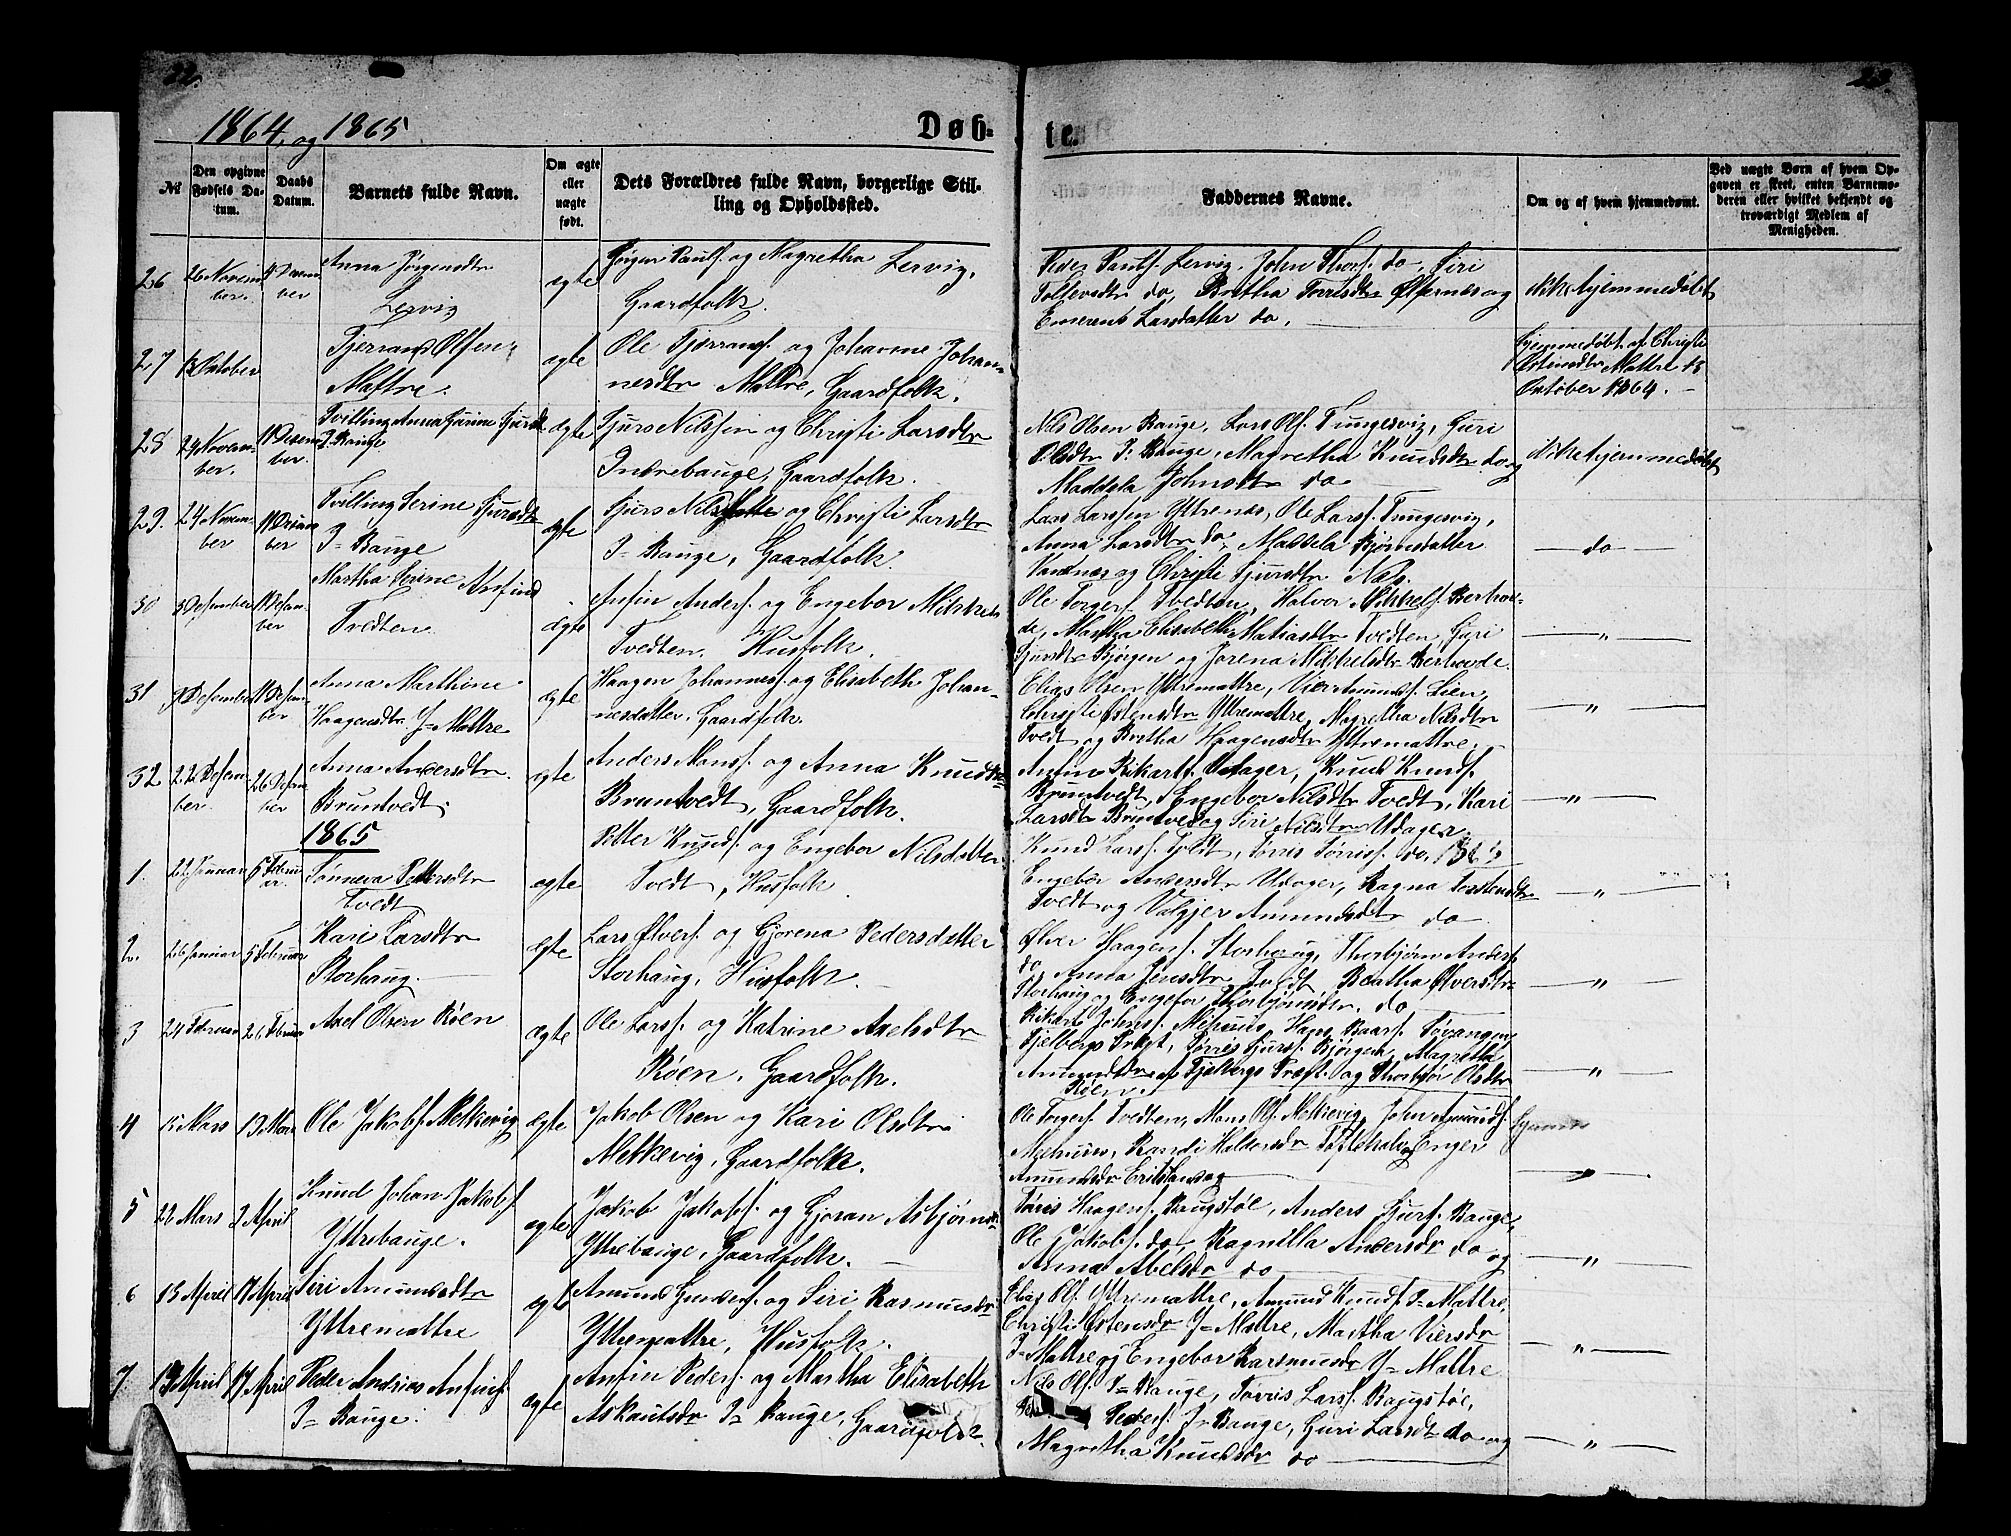 22.
23.
1864, og 1865
Døb-
te.
No
Den opgivne Fødsels Datum.
Daabs Datum.
Barnets fulde Navn.
Om ægte eller uægte født.
Dets Forældres fulde Navn, borgerlige Stilling og Opholdssted.
Faddernes Navne.
Om og af hvem hjemmedømt.
Ved uægte Børn af hvem Opgaven er skeet, enten Barnemoderen eller hvilket bekjendt og troværdigt Medlem af Menigheden.
26
26 November.
4 Desember
Anna Jørgensdtr
Lervig
ægte
Jørgen Paulsf. og Magretha Lervig,
Gaardfolk.
Peder Paulsf. Lervig, John Thorsf. do, Siri
Tollevsdtr do, Bretha Torrisdtr Ølfernæs og
Emerens Larsdatter do.
ikke hjemmedøbt
27
Oktober
Tjerrans Olsen
Mattre.
ægte
Ole Tjerransf. og Johanne Johan-
nesdtr Mattre, Gaardfolk.
Hjemmedøbt af Christi
Østensdtr Mattre 15
Oktober 1864.
28
24 November.
11 Desember.
Tvilling Anna Gurine Sjursdtr
I. Bauge
ægte
Sjurs Nilssen og Christi Larsdtr
Indrebauge, Gaardfolk.
Nils Olsen Bauge, Lars Olsf. Tungesvig, Guri
Olsdtr I. Bauge, Magretha Knudsdtr do og
Maddela Johnsdtr do
ikke hjemmedøbt
29.
24 November
11 Desember
Tvilling Serine Sjursdtr
I= Bauge
ægte
Sjurs Nils og Christi Larsdtr
I= Bauge, Gaardfolk.
Lars Larssen Yttrenæs, Ole Larsf. Tungesvig,
Anna Larsdtr do, Massela Bjørnsdatter
Vandnæs og Christi Sjursdtr Næs.
do
30
5 Desember
11 Desember
Martha Serine Anfind
Tvedten
ægte
Anfin Andersf. og Engebor Mikkels
Tvedten. Husfolk.
Ole Torgersf. Tvedten, Halvor Mikkelsf. Berhov-
de, Martha Elisabeth Matiasdtr Tvedten, Guri
Sjursdtr Bjørgen og Jorena Mikkelsdtr Berhovde.
"
31
9 Desember
11 Desember
Anna Marthine
Haagensdtr Y= Mattre
ægte
Haagen Johannesf. og Elisabeth Johan-
nesdatter. Gaardfolk.
Elias Olsen Yttremattre, Vier Amunsf. Lien,
Christi Østensdtr Yttremattre, Magretha Nilsdtr
Tvedt og Bretha Haagensdtr Yttremattre.
"
32
22 Desember.
26 Desember
Anna Andersdtr
Bruntvedt.
ægte
Anders Monsf. og Anna Knudsd
Bruntvedt, Gaardfolk.
Anfin Rikartsf. Udager, Knud Knudsf.
Bruntvedt, Engebor Nilsdtr Tvedt, Kari
Larsdtr Bruntvedt og Siri Nilsdtr Udager.
"
1865
1.
22 Januar
5 Februar.
Sønneva Pettersdtr
Tvedt
ægte
Petter Knudsf. og Engebor Nilsdatter
Tvedt, Husfolk.
Knud Larsf. Tvedt, Torris Torrisf. do,
Engebor Andersdtr Udager, Ragna Torstensdtr
Tvedt og Valgjer Amundsdtr do
"
2.
26 Januar
5 Februar
Kari Larsdtr
Storhaug.
ægte
Lars Ølversf. og Gjorena Pedersdatter
Storhaug, Husfolk.
Ølver Haagensf. Storhaug, Thorbjørn Andersf
do Anna Jensdtr Tvedt, Beatha Ølversdtr
Storhaug og Engebor Thorbjørnsdtr. do
"
3
24 Februar
26 Februar
Axel Olsen Røen
ægte
Ole Larsf. og Katrine Axelsdtr
Røen, Gaardfolk.
Rikart Johnsf. Mehuus, Hans Baarsf.
Fjelbergs Prægt, Torris Sjursf. Bjørgen, Magretha
Amundsdtr Fjelbergs Præst. og Thorbjør Olsdtr
Røen
"
4
Mars
19 Mars
Ole Jakobsf. Melkevig
ægte
Jakob Olsen og Kari Olsdtr
Melkevig, Gaardfolk.
Ole Torgersf. Tvedten, Mons Olsf. Melkevig, John Amundsf.
Mehuus, Randi Haldorsdr og Enger
Amunsdr
"
5
22 Mars
2 April
Knud Johan Jakobsf.
Yttrebauge.
ægte
Jakob Jakobsf. og Gjoran Asbjørns
Yttrebauge, Gaardfolk.
Torris Haagensf. Baugstøl, Anders Sjursf. Bauge,
Ole Jakobsf. do, Ragnilla Andersdr do og
Anna Abelsdr do
"
6
15 April
17 April
Siri Amundsdtr
Yttremattre
ægte
Amund Gundersf. og Siri Rasmusdr
Yttremattre, Husfolk.
Elias Olsf. Yttremattre, Amund Knudsf. I= Mattre,
Christi Østensdr Y= Mattre, Martha Viersdr
I= Mattre og Engebor Rarsmusdr Y= Mattre
"
7
April
17 April
Peder Andreas Anfinsf.
I= Bauge.
ægte
Anfin Pedersf. og Martha Elisabeth
Askautsdr I= Bauge, Gaardfolk.
Nils Olsf. I= Bauge, Torris Larsf. Baugstøl,
Pedersf. I= Bauge, Guri Larsdr do og
Magretha Knudsdr do
"